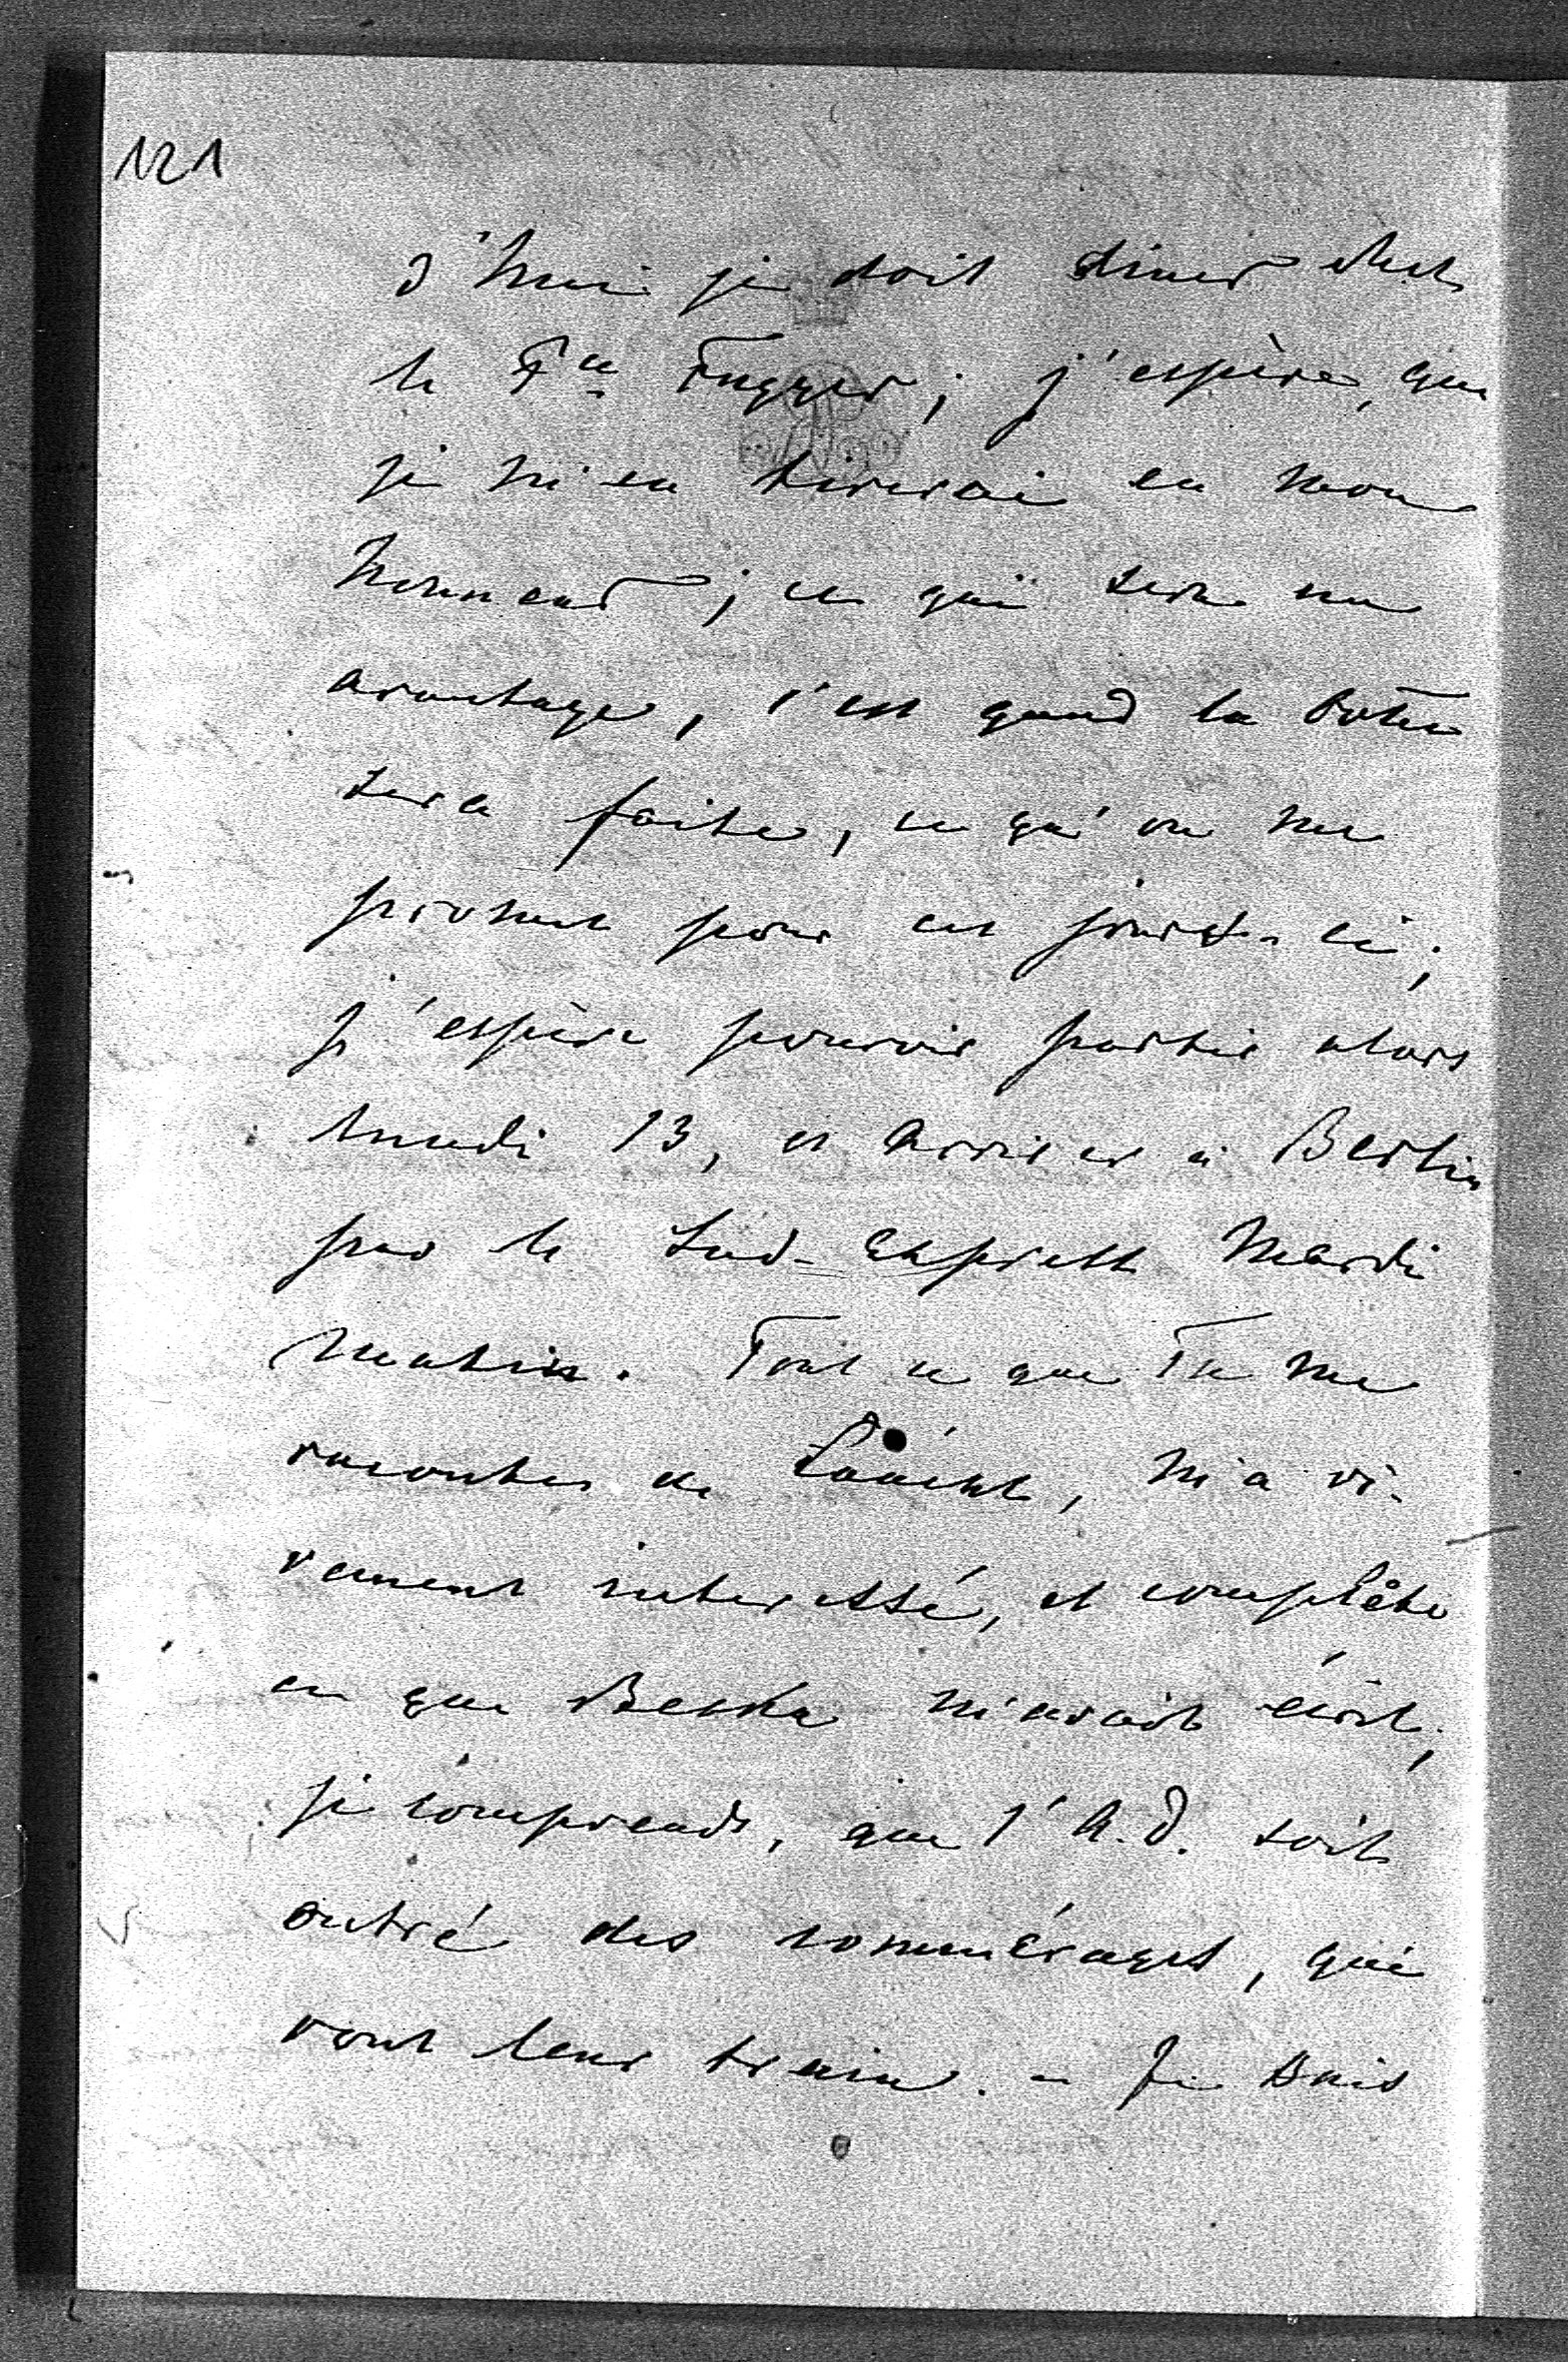 121
d'hui je doit diner chez
le Pce Fugger; j'espère, que
je m'en tirerai en mon
honneur; ce qui sera un
avantage, c'est quand la
sera faite, ce qu'on me
promet pour ces jours-ci;
j'espère pouvoir partir alors
lundi 13, et arriver à Berlin
par le Sud-Express Mardi
matin. Tout ce que Tu me
racontes de m'a vi-
vement interessé, et complète
ce que m'avait écrit,
je comprends, que l'A.D. soit
outré des commérages, qui
vont leur train. - Je suis